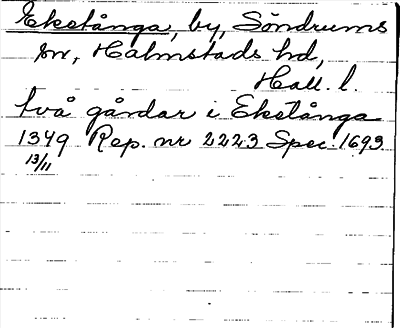 Ekstånga, by, Söndrums
sn, Halmstads hd,
Hall. l.
två gårdar i Ekstånga
1349 Rep. nr 2223 Spec. 1693
13/11